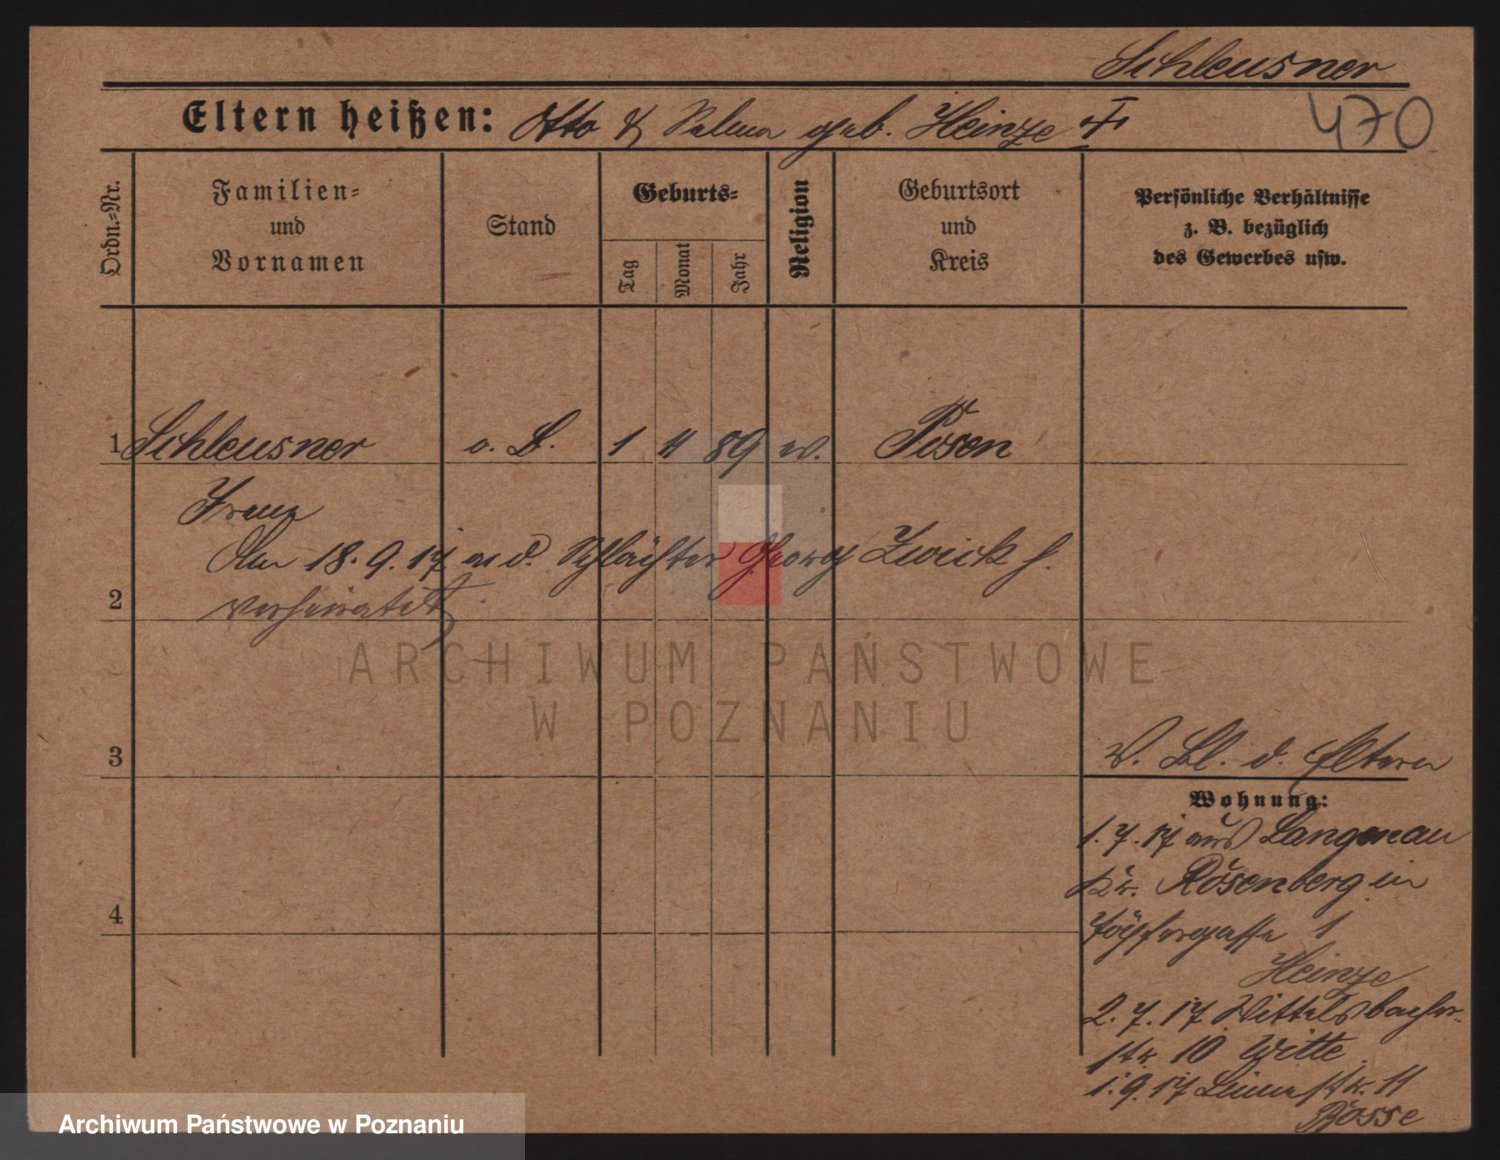 Schleusner
Eltern heißen: Otto & Salma geb. Heinze
470
Ordn.-Nr.
Familien-
und
Vornamen
Stand
Geburts-
Tag
Monat
Jahr
Religion
Geburtsort
und
Kreis
Persönliche Verhältnisse
z. B. bezüglich
des Gewerbes usw.
1 Schleusner o. B. 1 11 89 w. Posen
Am 18.9.17 m d. Schlächter Georg Zwick h.
2 verheiratet
ARCHIWUM PAŃSTWOWE
W POZNANIU
3
V. Bl. d. Eltern
Wohnung:
1.7.17 aus Langenau
Kr. Rosenberg in
4
Töpfergasse 1
Heinze
2.7.17 Wittelsbacher-
str 10 Witte
1.9.17 str. 11
Bosse
Archiwum Państwowe w Poznaniu